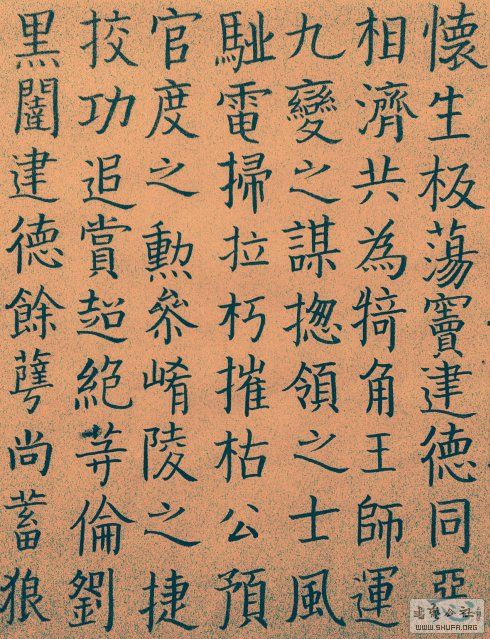 懷生板蕩竇建德同惡
相濟共為犄角王師運
九變之謀揔領之士風
馳電掃拉朽摧枯公預
官度之勲叅崤陵之捷
挍功追賞超絕等倫劉
黑闥建德餘孽尚蓄狼
WWW.SHUFA.ORG